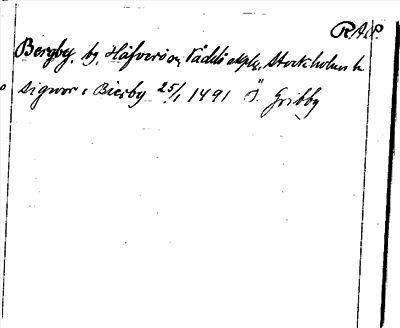 RAP
Bergby, by, Häfverö sn, Väddö skplg, Stockholms l.
sigwor i Bierby 25/1 1491 Ö. Gribby